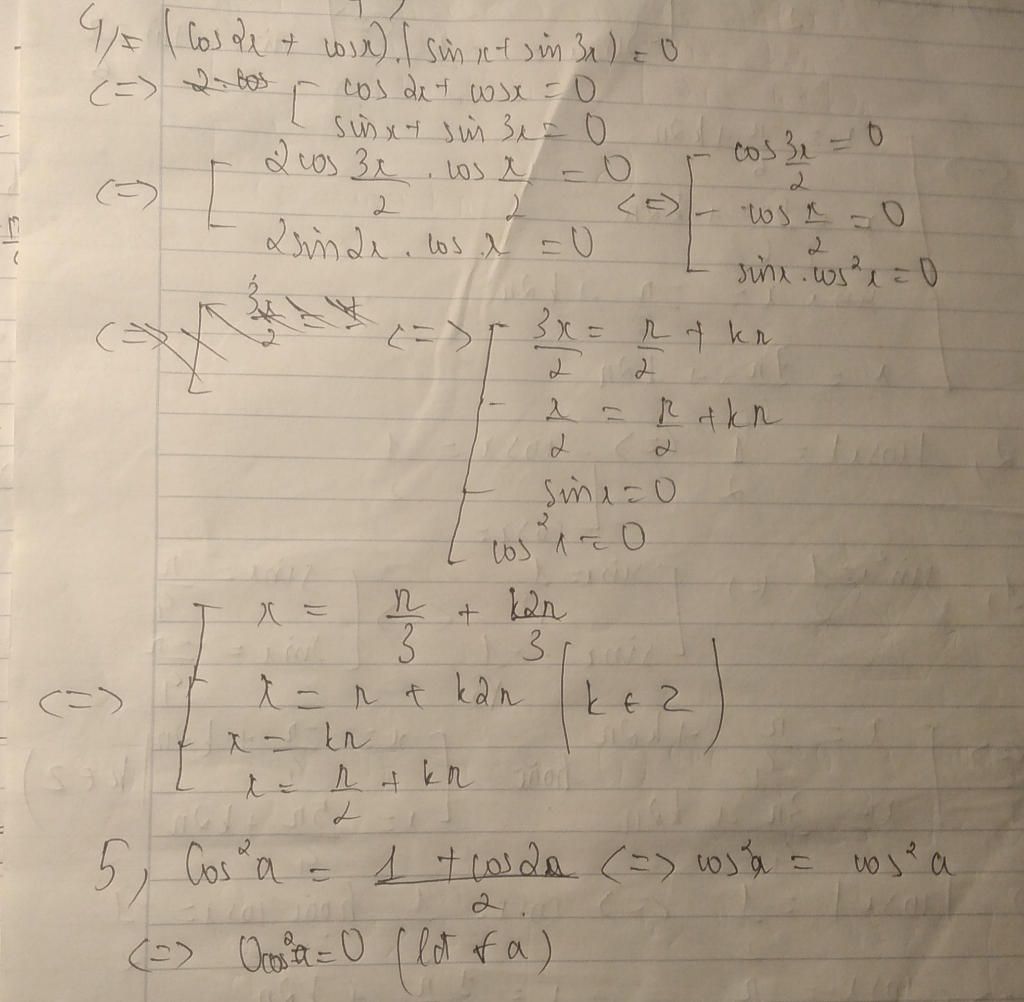 4, = (cos2x + cosx).(sinx + sin3x) = 0
<=> 2.cos [ cos2x + cosx = 0
sinx + sin3x = 0
<=> [ 2cos 3x/2 . cos x/2 = 0 <=> [ cos 3x/2 = 0
cos x/2 = 0
2sin2x . cosx = 0
sinx.cos²x = 0
<=> [ 3x/2 = <=> [ 3x/2 = π/2 + kπ
x/2 = π/2 + kπ
sinx = 0
cos²x = 0
<=> [ x = π/3 + k2π/3
x = π + k2π (k ∈ Z)
x = kπ
x = π/2 + kπ
5, Cos²a = (1 + cos2a)/2 <=> cos²a = cos²a
<=> 0cos²a = 0 (lđ ∀ a)